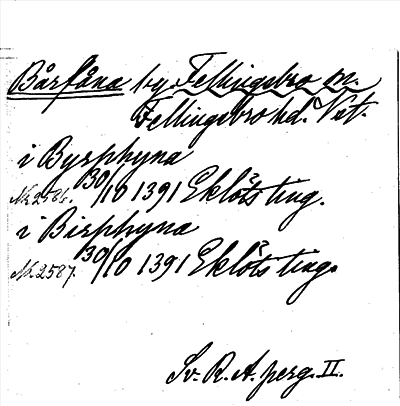 Bårfåna by. Fellingsbro sn.
Fellingsbro hd. Vst.
i Byrphyna
Nr. 2586. 30/10 1391 Eklöts ting.
i Birphyna
Nr. 2587. 30/10 1391 Eklöts ting.
Sv. R. A. perg. II.